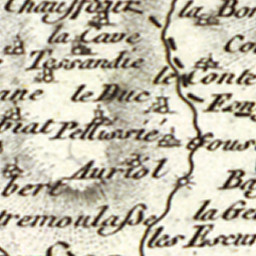 Chauffour
la Bor
la Cave
Cou
Tessandié
le Conte
ane
le Duc
Fon
biat
Pellissrié
Cous
Auriol
bert
Ba
la Ge
tremoulasse
les Escur